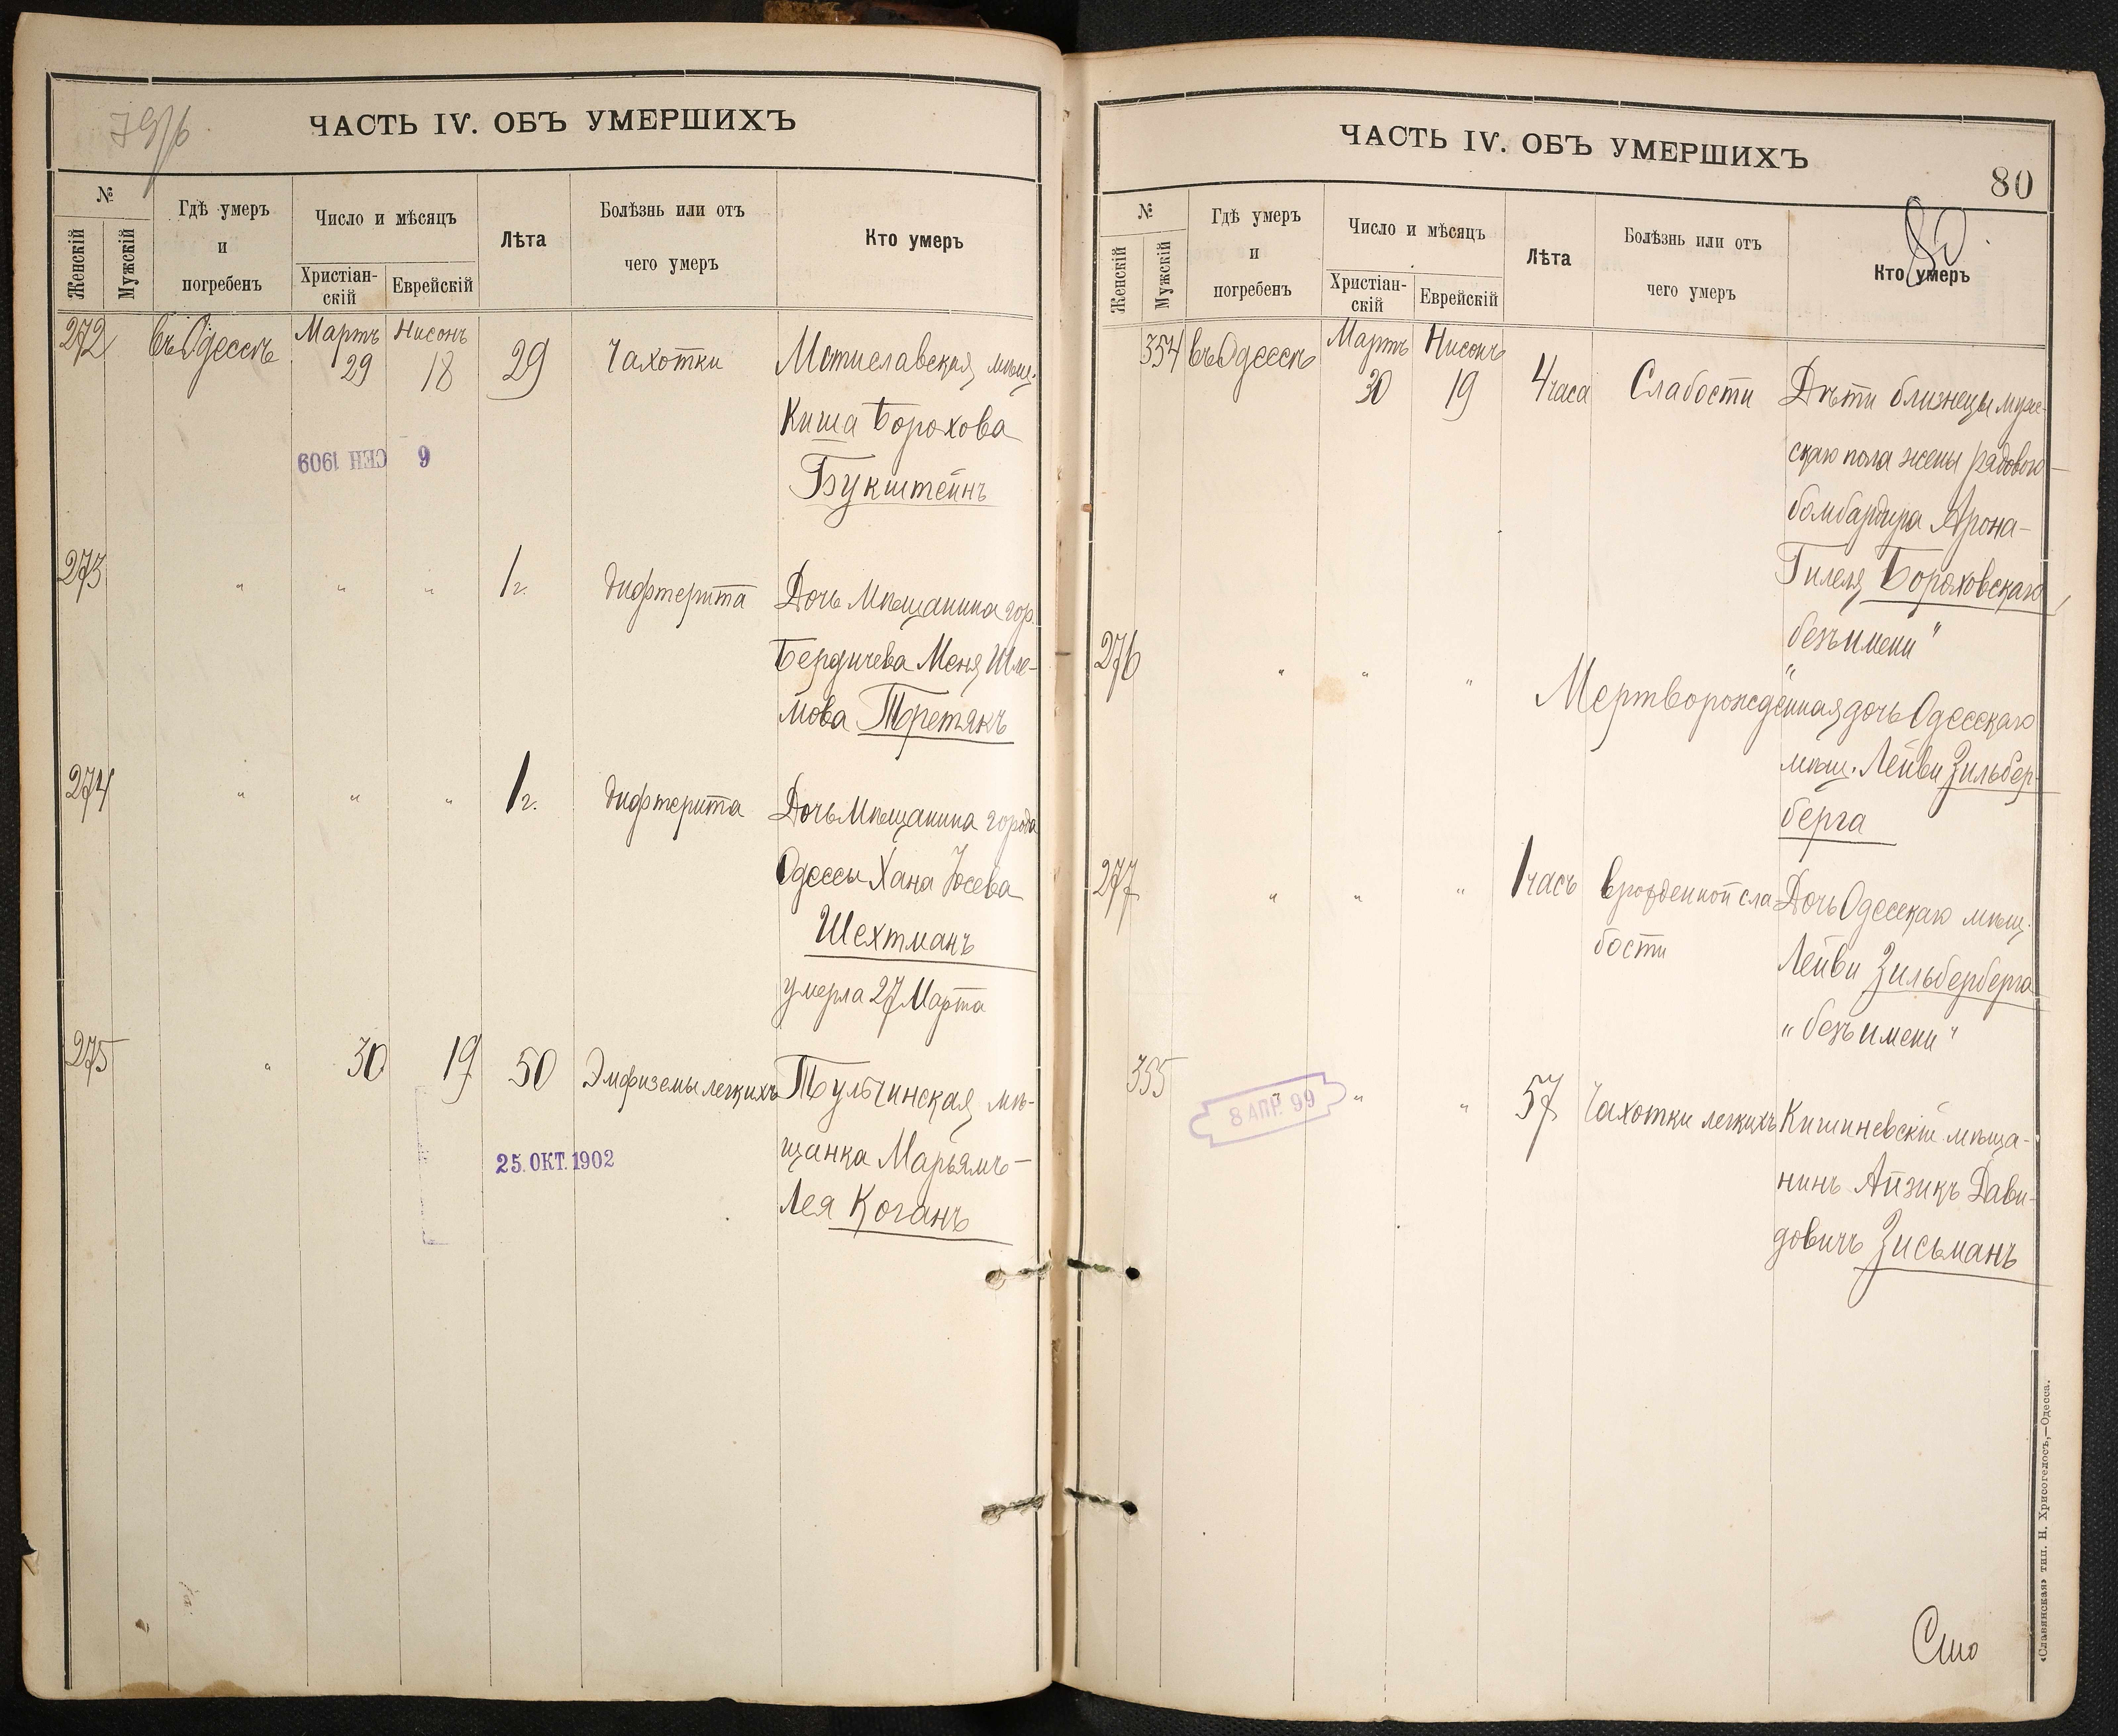 79/б
ЧАСТЬ IV. ОБЪ УМЕРШИХЪ
№
Женскій
Мужскій
Гдѣ умеръ
и
погребенъ
Число и мѣсяцъ
Христіан-
скій
Еврейскій
Лѣта
Болѣзнь или отъ
чего умеръ
Кто умеръ
272 въ Одессѣ Мартъ 29 Нисонъ 18 29 Чахотки Мстиславская мѣщ.
Киша Борохова
Букштейнъ
6 СЕН 1909
273 " " " 1 г. Дифтерита Дочь мѣщанина гор.
Бердичева Меня Шле-
мова Третякъ
274 " " " 1 г. Дифтерита Дочь мѣщанина города
Одессы Хана Іосева
Шехтманъ
умерла 27 Марта
275 " 30 19 50 Эмфиземы легкихъ Тульчинская мѣ-
щанка Марьямъ-
Лея Коганъ
25. ОКТ. 1902
ЧАСТЬ IV. ОБЪ УМЕРШИХЪ
80
80
№
Женскій
Мужскій
Гдѣ умеръ
и
погребенъ
Число и мѣсяцъ
Христіан-
скій
Еврейскій
Лѣта
Болѣзнь или отъ
чего умеръ
Кто умеръ
354 въ Одессѣ Мартъ 30 Нисонъ 19 4 часа Слабости Дѣти близнецы муже-
скаго пола жены рядового
бомбардира Арона-
Гилеля Бороховскаго,
безъ имени"
276 " " " Мертворожденная дочь Одесскаго
мѣщ. Лейви Зильбер-
берга
277 " " " 1 часъ врожденной сла Дочь Одесскаго мѣщ.
бости Лейви Зильберберга
"безъ имени"
355 " " " 57 Чахотки легкихъ Кишиневскій мѣща-
нинъ Айзикъ Дави-
довичъ Зисьманъ
8 АПР. 99
Сто
«Славянская» тип. Н. Хрисогелосъ,—Одесса.